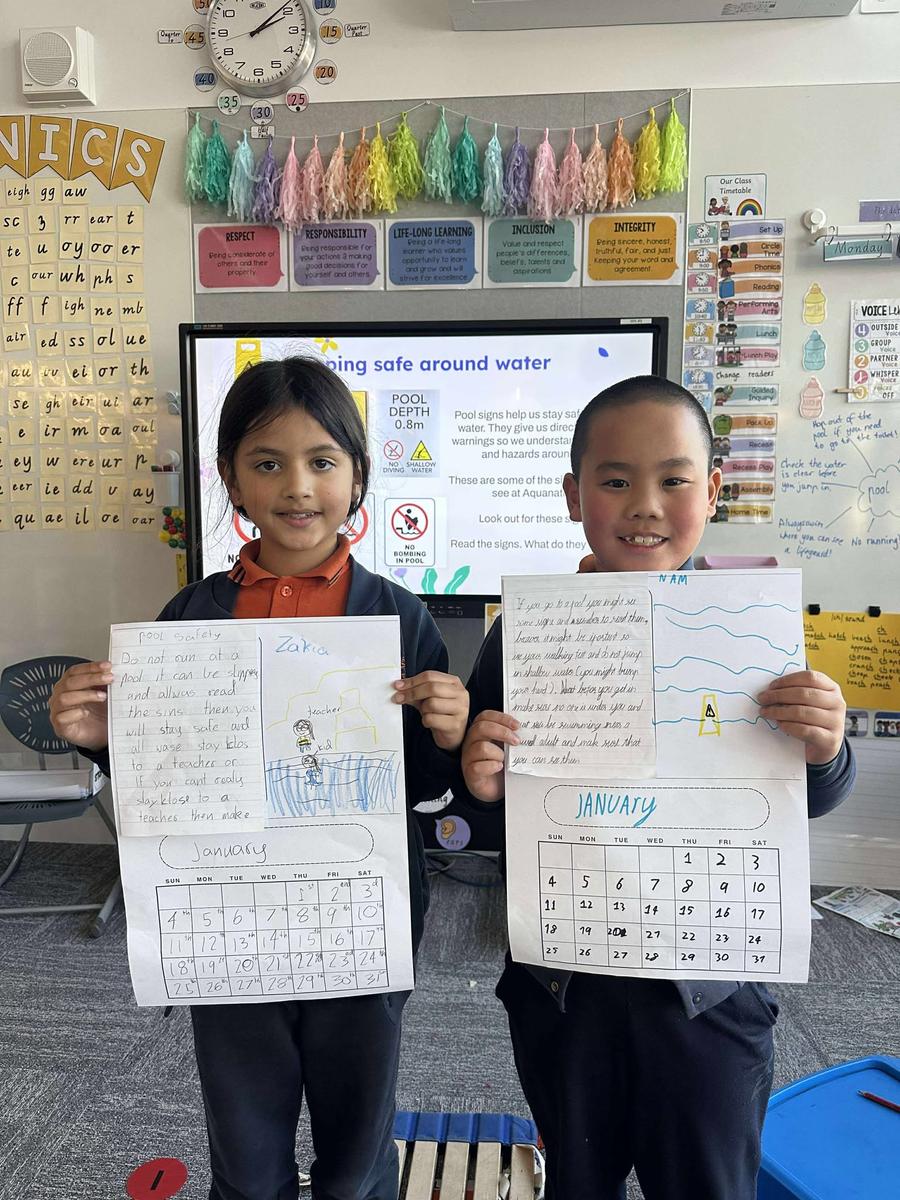 10
Quarter To
45
15
Quarter Past
40
20
35
25
30
Half Past
NICS
eigh gg aw
sc z rr ear t
te u oy oo er
c our wh ph s
ff f igh ne mb
air ed ss ol ue
au w ei or th
se gh eir ui ar
e ir m oa oul
ey w ere ur p
eer ie dd v ay
qu ae il oe oar
RESPECT
Being considerate of
others and their
property.
RESPONSIBILITY
Being responsible for
your actions & making
good decisions for
yourself and others.
LIFE-LONG LEARNING
Being a life-long
learner who values
opportunity to learn
and grow and will
strive for excellence
INCLUSION
Value and respect
people's differences,
beliefs, talents and
aspirations
INTEGRITY
Being sincere, honest,
truthful, fair, and just.
Keeping your word and
agreement.
Our Class
Timetable
Set Up
Circle Time
Phonics
Reading
Performing Arts
Lunch
Lunch Play
Change readers
Guided Inquiry
Pack Up
Recess
Recess Play
Assembly
Home Time
Monday
VOICE
4 OUTSIDE Voice
3 GROUP Voice
2 PARTNER Voice
1 WHISPER
OFF
Hop out of the
pool if you need
to go to the toilet!
Check the water
is clear before
you jump in.
pool
Always swim
where you can see
a lifeguard!
No running!
ping safe around water
POOL
DEPTH
0.8m
NO DIVING
SHALLOW WATER
NO
BOMBING
IN POOL
Pool signs help us stay saf
water. They give us direc
warnings so we understan
and hazards aroun
These are some of the si
see at Aquana
Look out for these s
Read the signs. What do they
pool Safety
Do not run at a
pool it can be slippery
and allwas read
the sins then you
will stay safe and
all wase stay klos
to a teacher or
If you cant realy
stay klose to a
teacher then make
Zakia
teacher
kid
January
SUN MON TUE WED THU FRI SAT
1st 2end 3d
4th 5th 6th 7th 8th 9th 10th
11th 12th 13th 14th 15th 16th 17th
18th 19th 20th 21st 22nd 23rd 24th
25th 26th 27th 28th 29th 30th 31st
NAM
If you go to a pool you might see
some signs and
in shallow water (you might bump
your head). What before you get in
make sure no one is under you and
adult and make sure that
you can see them
JANUARY
SUN MON TUE WED THU FRI SAT
1 2 3
4 5 6 7 8 9 10
11 12 13 14 15 16 17
18 19 20 21 22 23 24
25 26 27 28 29 30 31